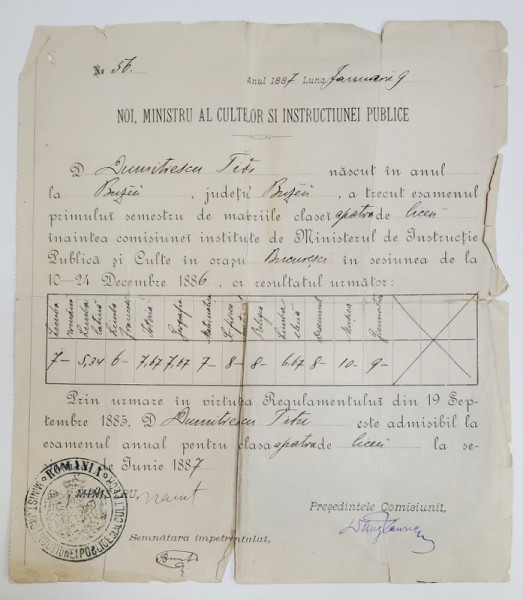 No 56.
Anul 1887 Luna Januarie 9
NOI, MINISTRU AL CULTELOR SI INSTRUCTIUNEI PUBLICE
D Dumitrescu Titu născut în anul
la Buzĕŭ, județŭ Buzĕŭ, a trecut esamenul
primului semestru de materiile clasei a patra de liceŭ
înaintea comisiunei institute de Ministerul de Instrucție
Publică și Culte în orașu București în sesiunea de la
10–24 Decembre 1886, cu resultatul următor:
Limba română Limba latină Limba Istoria Geografia Matematica Religia Limba elenă Desemnul Musica Gimnastica
7– 5,34 6– 7.67 7,67 7– 8– 8– 6.67 8– 10– 9–
Prin urmare în virtutea Regulamentului din 19 Sep-
tembre 1885, D Dumitrescu Titu este admisibil la
esamenul anual pentru clasa a patra de liceŭ la se-
de Iunie 1887
MINISTRU,
ROMANIA
Președintele Comisiunii,
Semnătura impetrantului,